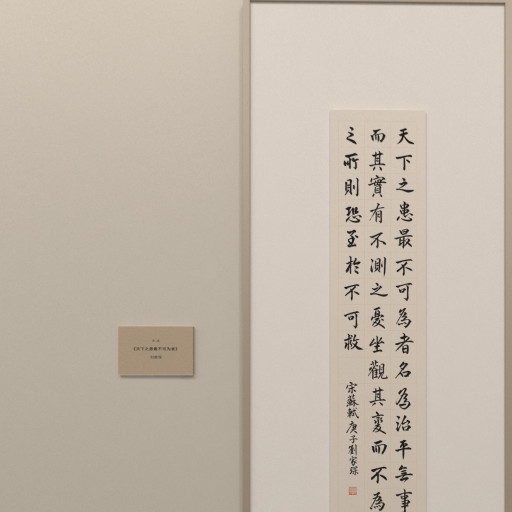 天下之患最不可為者名為治平無事
而其實有不測之憂坐觀其變而不為
之所則恐至於不可救
宋蘇軾庚子劉家琛